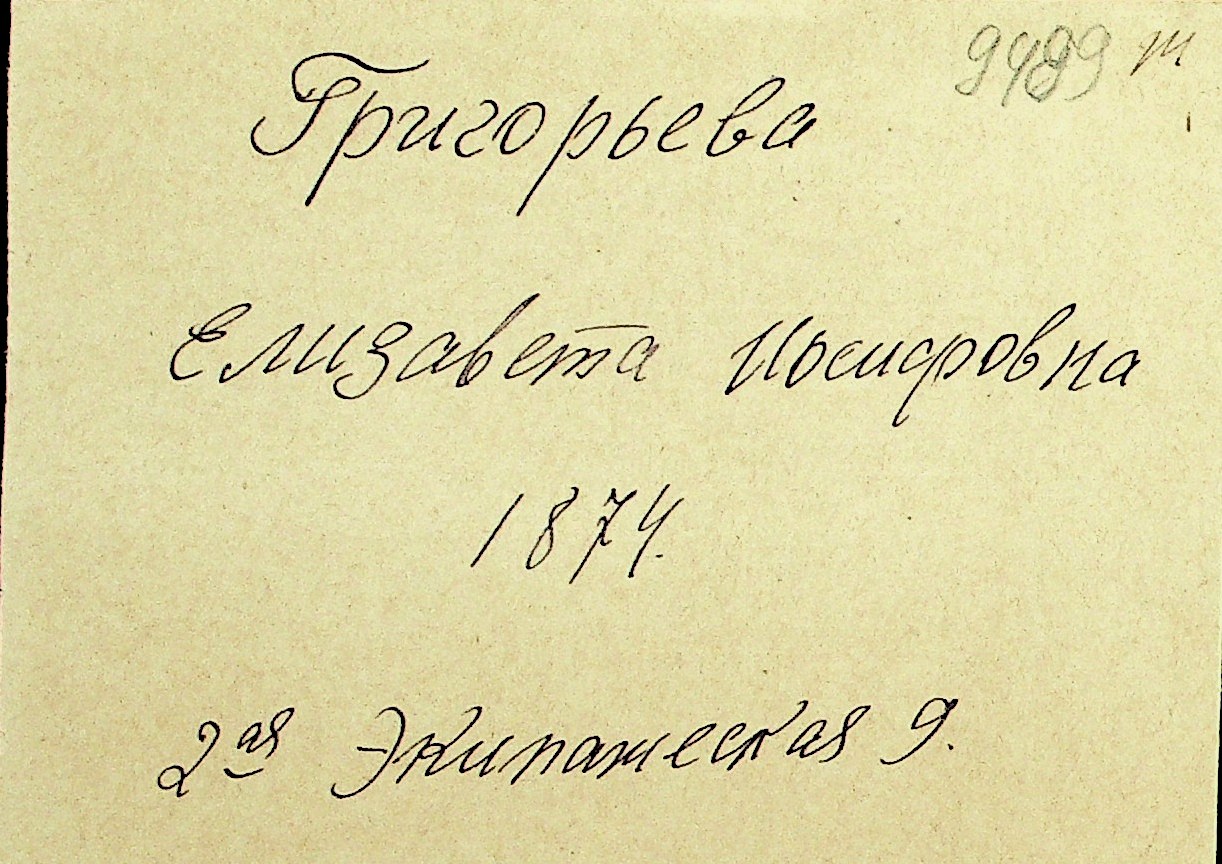 Григорьева
Елизавета Иосифовна
1874.
2ая Экипажеская 9.